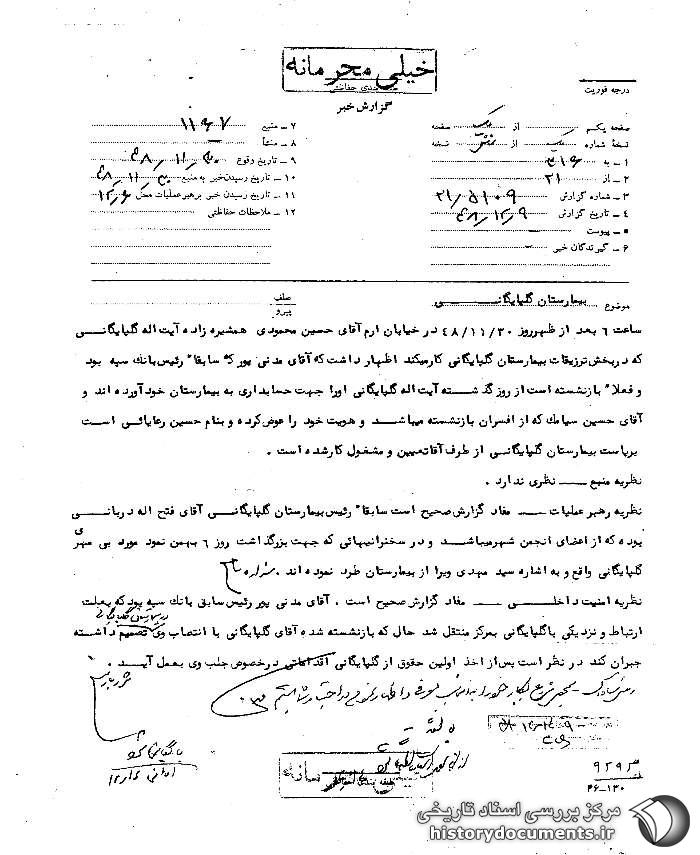 خیلی محرمانه
درجه فوریت
گزارش خبر
صفحه یکم از یک صفحه
نسخهٔ شماره از نسخه
۱ ـ به ۳۱۶
۲ ـ از ۲۱
۳ ـ شماره گزارش ۲۱/۵۱۰۹
۴ ـ تاریخ گزارش ۴۸/۱۲/۹
۵ ـ پیوست
۶ ـ گیرندگان خبر
۷ ـ منبع ۱۱۶۷
۸ ـ منشأ
۹ ـ تاریخ وقوع ۴۸/۱۱/۳۰
۱۰ ـ تاریخ رسیدن خبر به منبع ۴۸/۱۱/۳۰
۱۱ ـ تاریخ رسیدن خبر برهبر عملیات محل ۱۲/۶
۱۲ ـ ملاحظات حفاظتی
موضوع بیمارستان گلپایگانـــی
عطف
پیرو
ساعت ۶ بعد از ظهر روز ۴۸/۱۱/۳۰ در خیابان ارم آقای حسین محمودی همشیره زاده آیت اله گلپایگانـــی
که در بخش تزریقات بیمارستان گلپایگانی کار میکند اظهار داشت که آقای مدنی پور که سابقا" رئیس بانک سپه بود
و فعلا" بازنشسته است از روز گذشته آیت اله گلپایگانی او را جهت حسابداری به بیمارستان خود آورده اند و
آقای حسین سیامک که از افسران بازنشسته میباشد و هویت خود را عوض کرده و بنام حسین رعایائی است
بریاست بیمارستان گلپایگانـی از طرف آقا تعیین و مشغول کار شده است .
نظریه منبع ـــ نظری ندارد .
نظریه رهبر عملیات ـــ مفاد گزارش صحیح است سابقا" رئیس بیمارستان گلپایگانـی آقای فتح اله دربانـی
بوده که از اعضای انجمن شهر میباشد و در سخنرانیهائی که جهت بزرگداشت روز ۶ بهمن نمود مورد بی مهری
گلپایگانی واقع و به اشاره سید مهدی ویرا از بیمارستان طرد نموده اند .
نظریه امنیت داخلـــی ـــ مفاد گزارش صحیح است . آقای مدنی پور رئیس سابق بانک سپه بود که بعلت
ارتباط و نزدیکی با گلپایگانی بمرکز منتقل شد حال که بازنشسته شده آقای گلپایگانی با انتصاب وی در بیمارستان گلپایگانی تصمیم داشته
جبران کند در نظر است پس از اخذ اولین حقوق از گلپایگانی اقداماتی در خصوص جلب وی بعمل آیـــد .
۹۲۹۲
۴۶-۱۳۰
مرکز بررسی اسناد تاریخی
historydocuments.ir